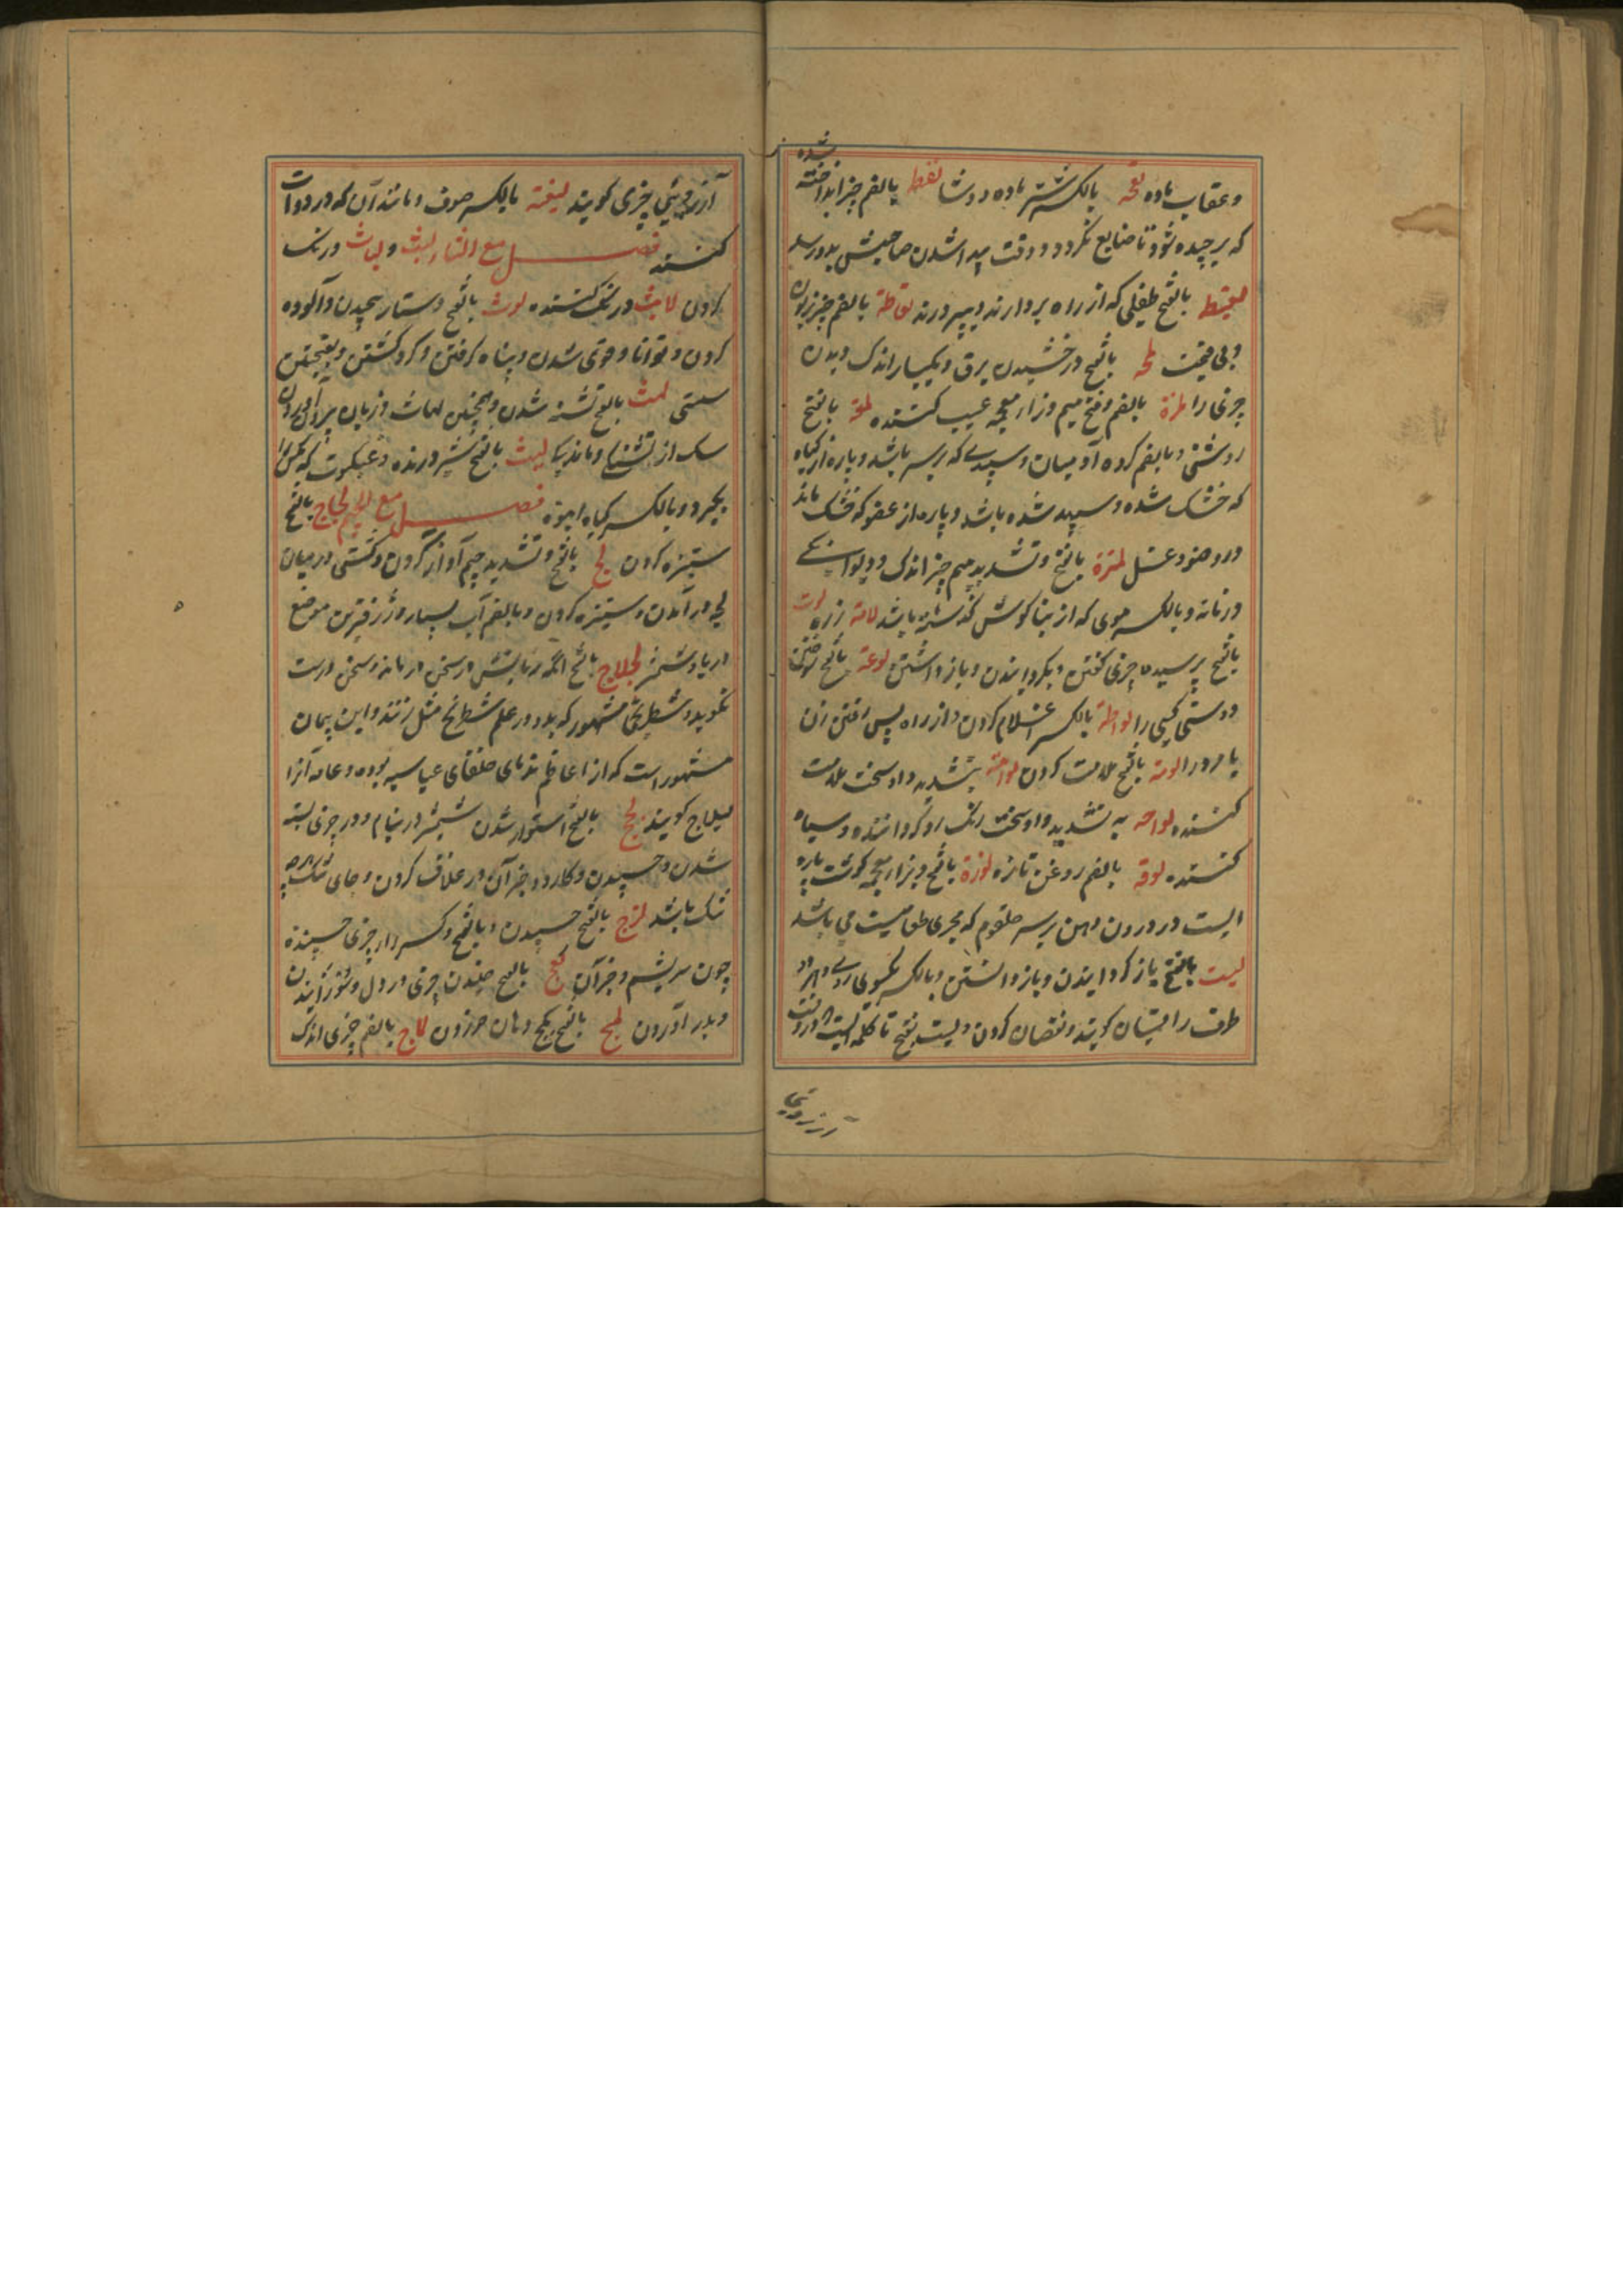 و عقاب ماده لقحه بالکسر شتر ماده دوشا لقط بالضم چیز انداخته شده
که برچیده شود تا ضایع نگردد و وقت پیدا شدن صاحبش بدو رسد
لقیط بالفتح طفلی که از راه بردارند و بپرورند لقاطة بالضم چیز زبون
و بی قیمت لمحه بالفتح درخشیدن برق و یکبار اندک دیدن
چیزی را لمزة بالضم و فتح میم و زاء معجمه عیب کننده لمة بالفتح
روشنی و بالضم کروه آدمیان و سپیدی که بر سر باشد و پاره از کیاه
که خشک شده و سپید شده باشد و پاره از عضو که خشک ماند
در وضو و غسل لمزة بالفتح و تشدید میم چیز اندک و دیوانکی
در زمانه و بالکسر موی که از بناکوش گذشته باشد لامة زره لوت
بالفتح پرسیده چیزی گفتن و بگردانیدن و باز داشتن لوعة بالفتح سوختن
دوستی کسی را لواطة بالکسر اغلام کردن و از راه پس رفتن زن
یا مرد را لومة بالفتح ملامت کردن لوامة بتشدید واو سخت ملامت
کننده لواحه به تشدید واو سخت رنگ رو گرداننده و سیاه
کننده لوقه بالضم روغن تازه لوزة بالفتح و بزاء معجمه گوشت پاره
ایست در درون دهن بر سر حلقوم که مجری طعامست می باشد
لیت بالفتح باز گردانیدن و باز داشتن و بالکسر یکسوی گردن و هر دو
طرف را لیتان کویند و نقصان کردن و لیت بفتح تا کلمه ایست که در وقت
آرزو شی
آرزوی چیزی کویند لیقة بالکسر صوف و مانند آن که در دوات
کنند فصل مع الثاء لبث و لباث درنک
کردن لابث درنک کننده لوث بالفتح دستار پیچیدن و آلوده
کردن و توانا و قوی شدن و پناه کرفتن و کرد گشتن و بفتحتین
سستی لهث بالفتح تشنه شدن و همچنین لهاث و زبان بیرون آوردن
سک از تشنکی و ماندکی لیث بالفتح شیر درنده و عنکبوت که مکس را
بگیرد و بالکسر کیاه انبوه فصل مع الجیم لجاج بالفتح
ستیزه کردن لج بالفتح و تشدید جیم آواز کردن و کشتی در میان
لجه در آمدن و ستیزه کردن و بالضم آب بسیار و ژرفترین موضع
دریا و شمشیر لجلاج بالفتح آنکه زبانش در سخن درماند و سخن درست
نگوید و شطرنجی مشهور که بدو در علم شطرنج مثل زنند و این پیمان
مشهور است که از اعاظم ندمای خلفای عباسیه بوده و عامه آنرا
لیلاج کویند لحج بالفتح استوار شدن شمشیر در نیام و در چیزی بسته
شدن و چسپیدن و کارد و جز آن در غلاف کردن و جای تنک
تنک باشد لزج بالفتح چسپیدن و بالفتح و کسر زاء چیزی چسپنده
چون سریشم و جز آن لعج بالفتح خلیدن چیزی در دل و سوزانیدن
و بدرد آوردن لمج بالفتح بکنج دهان خوردن لماج بالضم چیزی اندک